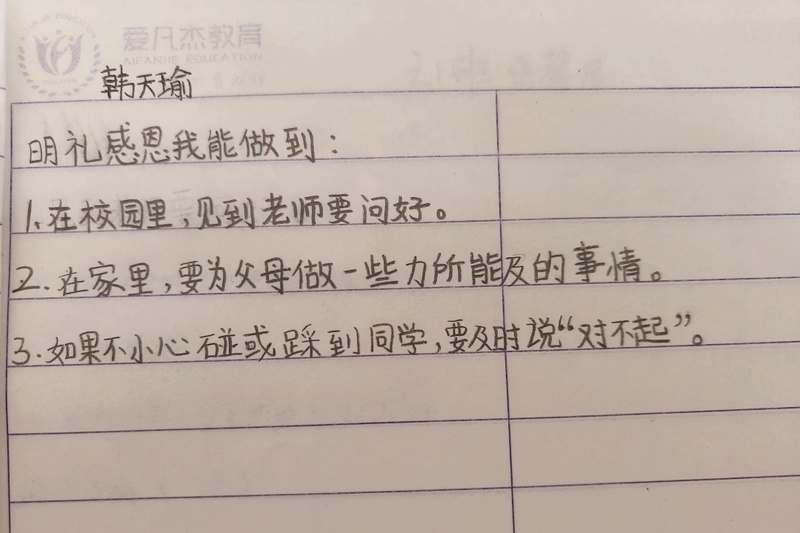 爱凡杰教育
AIFANJIE EDUCATION
韩天瑜
明礼感恩我能做到：
1.在校园里，见到老师要问好。
2.在家里，要为父母做一些力所能及的事情。
3.如果不小心碰或踩到同学，要及时说“对不起”。